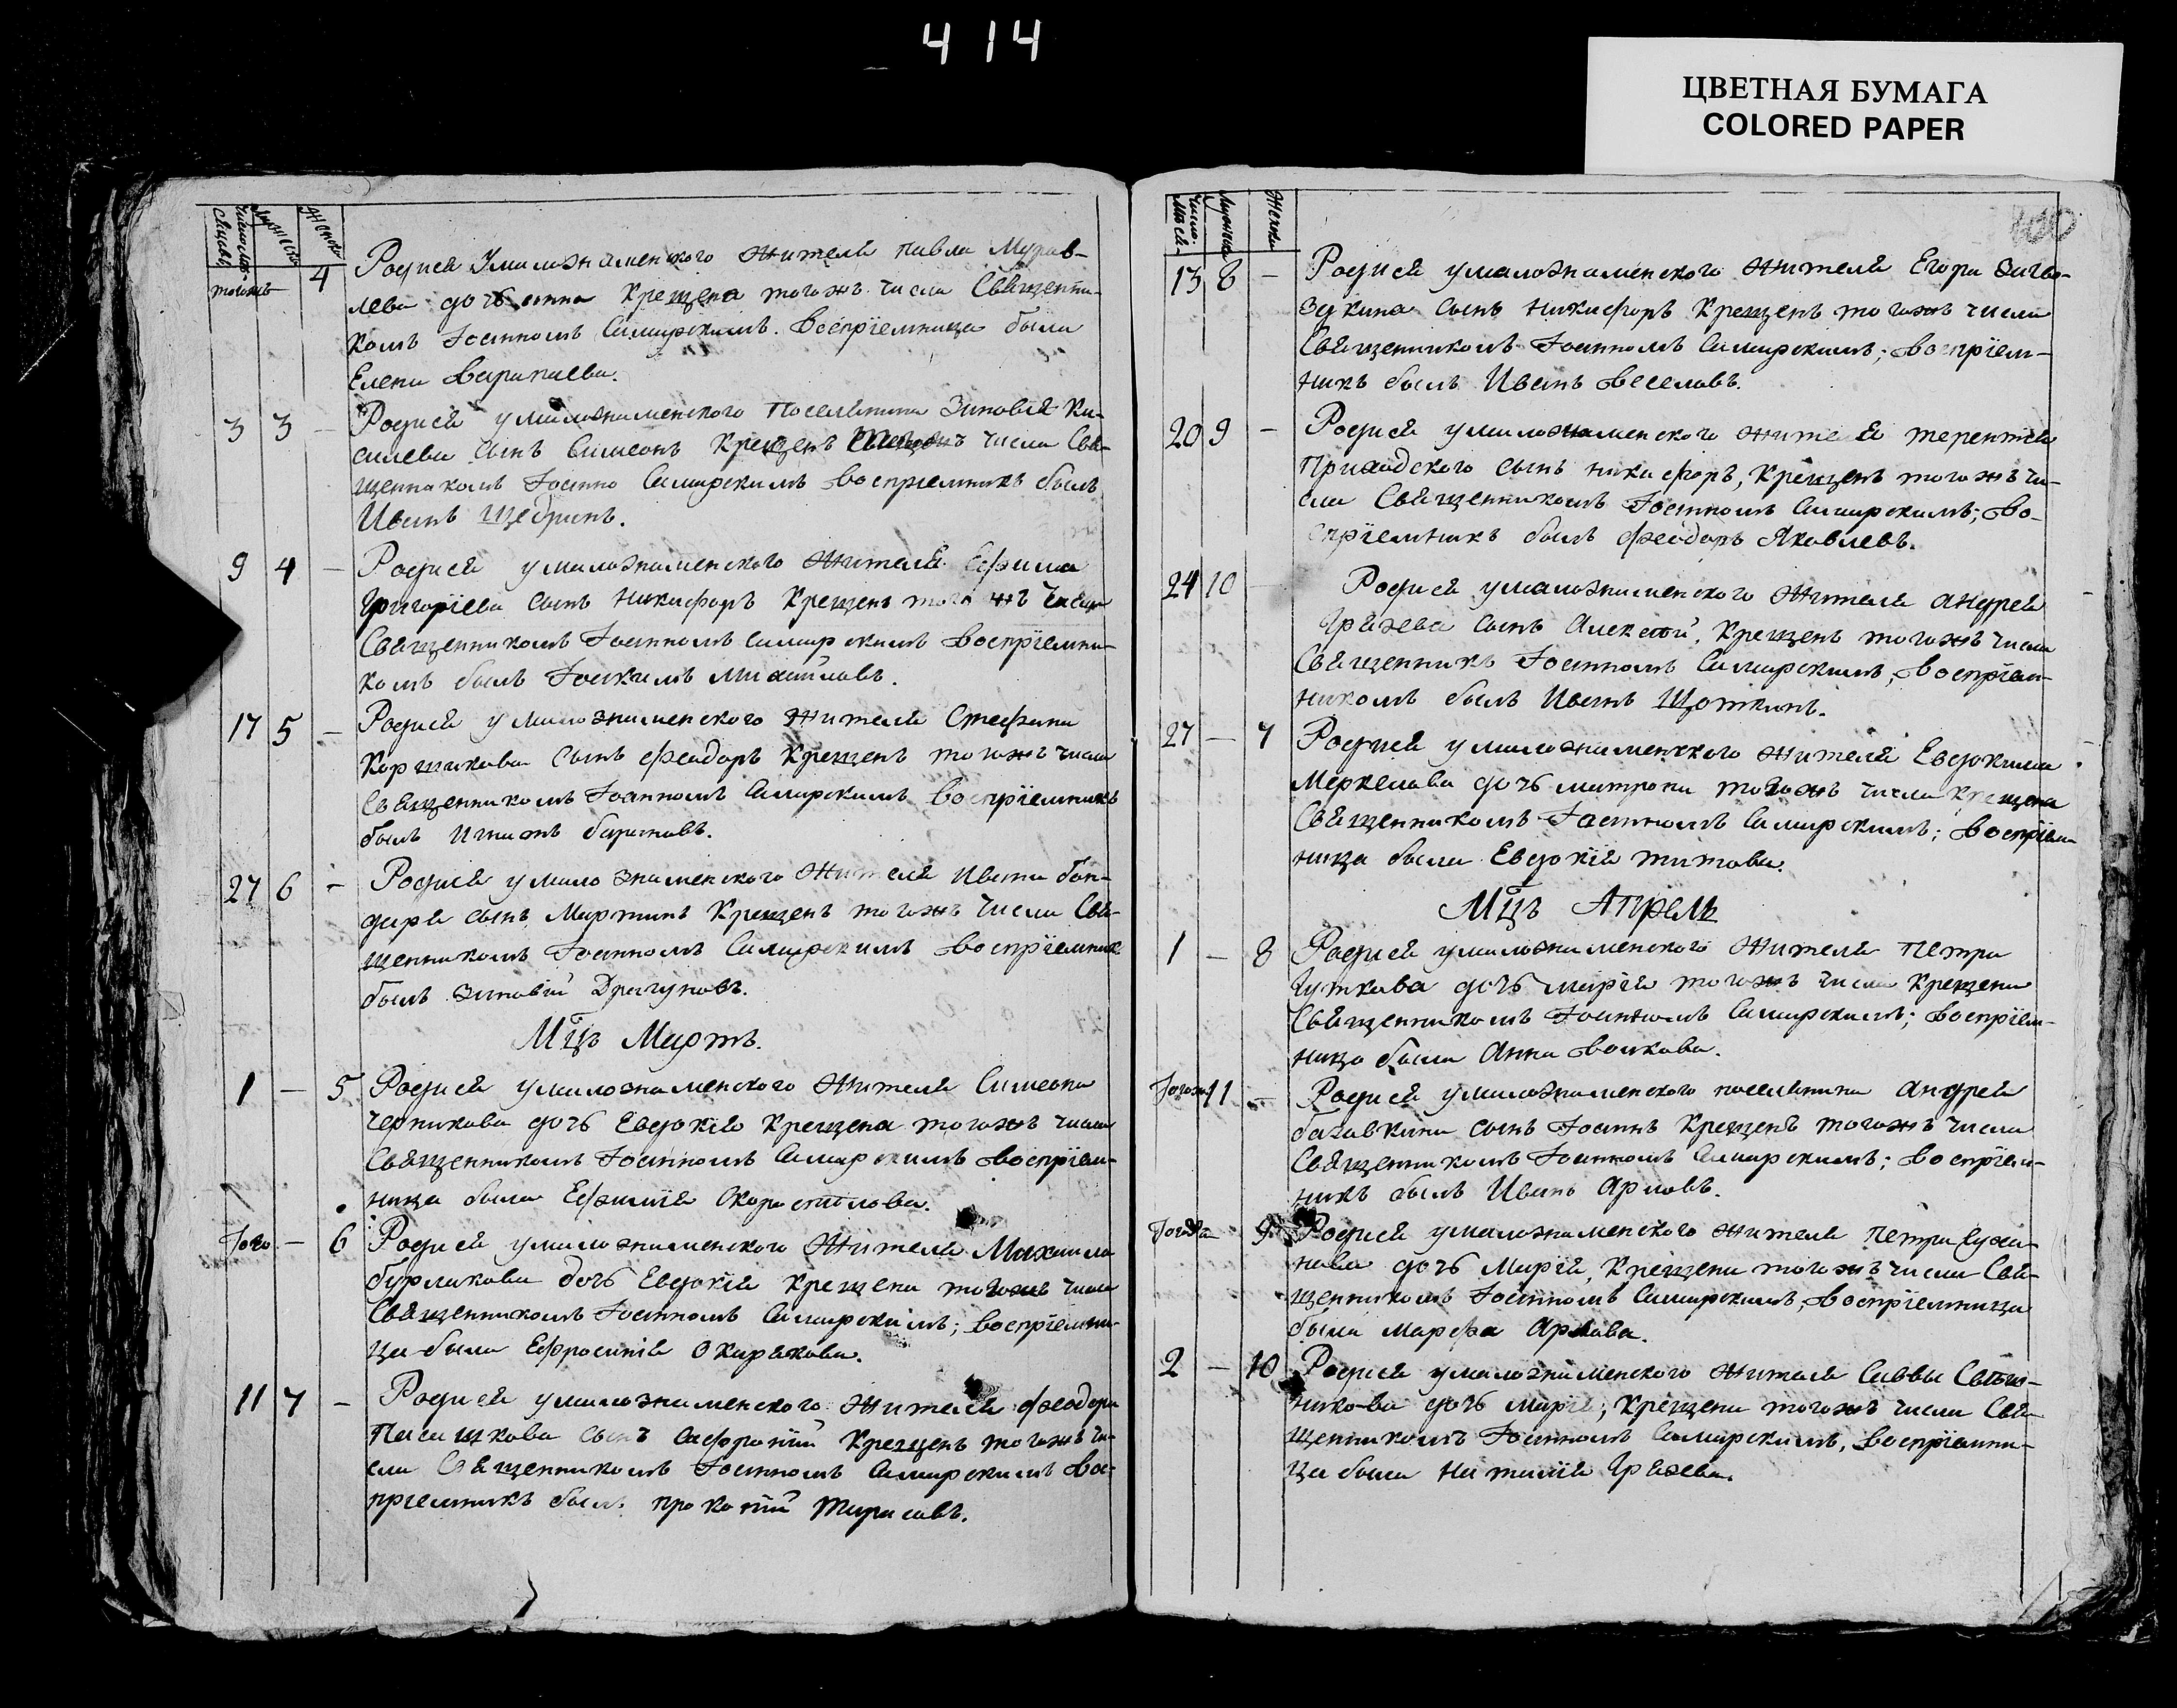 414
ЦВЕТНАЯ БУМАГА
COLORED PAPER
Число мѣсяцовъ
Мужеска
Женска
тогожъ 4 Родися Умалознаменского жителя павла Мурав-
лева дочь анна Крещена тогожъ числа Священни-
комъ Іоанномъ Самарскимъ. воспріемница была
Елена варапаева.
3 3 – Родися умалознаменского Поселянина Зиновія Ки-
силева сынъ Симеонъ Крещенъ тогожъ числа Свя-
щенникомъ Іоанно Самарскимъ воспріемникъ былъ
Иванъ Щедринъ.
9 4 – Родися умалознаменского жителя Ефима
Григоріева сынъ Никифоръ Крещенъ тогожъ числа
Священникомъ Іоанномъ Самарскимъ воспріемни-
комъ былъ Іоакимъ михайловъ.
17 5 – Родися умалознаменского жителя Стефана
Коршикова сынъ феодоръ Крещенъ тогожъ числа
Священникомъ Іоанномъ Самарскимъ воспріемникъ
былъ Игнатъ бариновъ.
27 6 – Родися умалознаменского жителя Ивана бон-
даря сынъ Мартинъ Крещенъ тогожъ числа Свя-
щенникомъ Іоанномъ Самарскимъ воспріемник
былъ зиновій Драгуновъ.
Мцъ Мартъ.
1 – 5 Родися умалознаменского жителя Симеона
Черникова дочь Евдокія Крещена тогожъ числа
Священникомъ Іоанномъ Самарскимъ воспріем-
ница была Ефимія Скоростѣлова.
Того – 6 Родися умалознаменского жителя Михаила
бурлакова дочь Евдокія Крещена тогожъ числа
Священникомъ Іоанномъ Самарскимъ; воспріемни-
ца была Ефросинія Окарякова.
11 7 – Родися умалознаменского жителя феодора
Писцкова сынъ Сафроній Крещенъ тогожъ чи-
сла Священникомъ Іоанномъ Самарскимъ вос-
пріемникъ былъ прокопій Тарасовъ.
400
Число мѣся.
Мужеска
Женска
13 8 – Родися умалознаменского жителя Егора Заго-
зкина сынъ Никифоръ Крещенъ тогожъ числа
Священникомъ Іоанномъ Самарскимъ; воспріем-
никъ былъ Иванъ веселовъ.
20 9 – Родися умалознаменского жителя терентія
Приходского сынъ никифоръ, Крещенъ тогожъ чи-
сла Священникомъ Іоанномъ Самарскимъ; во-
спріемникъ былъ феодоръ Яковлевъ.
24 10 Родися умалознаменского жителя андрея
Грязева сынъ Алексѣй, Крещенъ тогожъ числа
Священникъ Іоанномъ Самарскимъ, воспріем-
никомъ былъ Иванъ Щоткинъ.
27 – 7 Родися умалознаменского жителя Евдокима
Меркелова дочь матрона тогожъ числа крещена
Священникомъ Іоанномъ Самарскимъ; воспріем-
ница была Евдокія титова.
Мцъ Апрель
1 – 8 Родися умалознаменского жителя Петра
Гуткова дочь марія тогожъ числа Крещена
Священникомъ Іоанномъ Самарскимъ; воспріем-
ница была Анна волкова.
Тогожъ 11 – Родися умалознаменского поселянина андрея
бахавкина сынъ Іоаннъ Крещенъ тогожъ числа
Священникомъ Іоанномъ Самарскимъ; воспріем-
никъ былъ Иванъ Арловъ.
9 Родися умалознаменского жителя петра Суха-
нова дочь Марія, Крещена тогожъ числа Свя-
щенникомъ Іоанномъ Самарскимъ, воспріемница
была марфа Арлова.
2 – 10 Родися умалознаменского жителя Саввы Сѣтни-
кова дочь марія; Крещена тогожъ числа Свя-
щенникомъ Іоанномъ Самарскимъ, воспріемни-
ца была наталія Грязева.